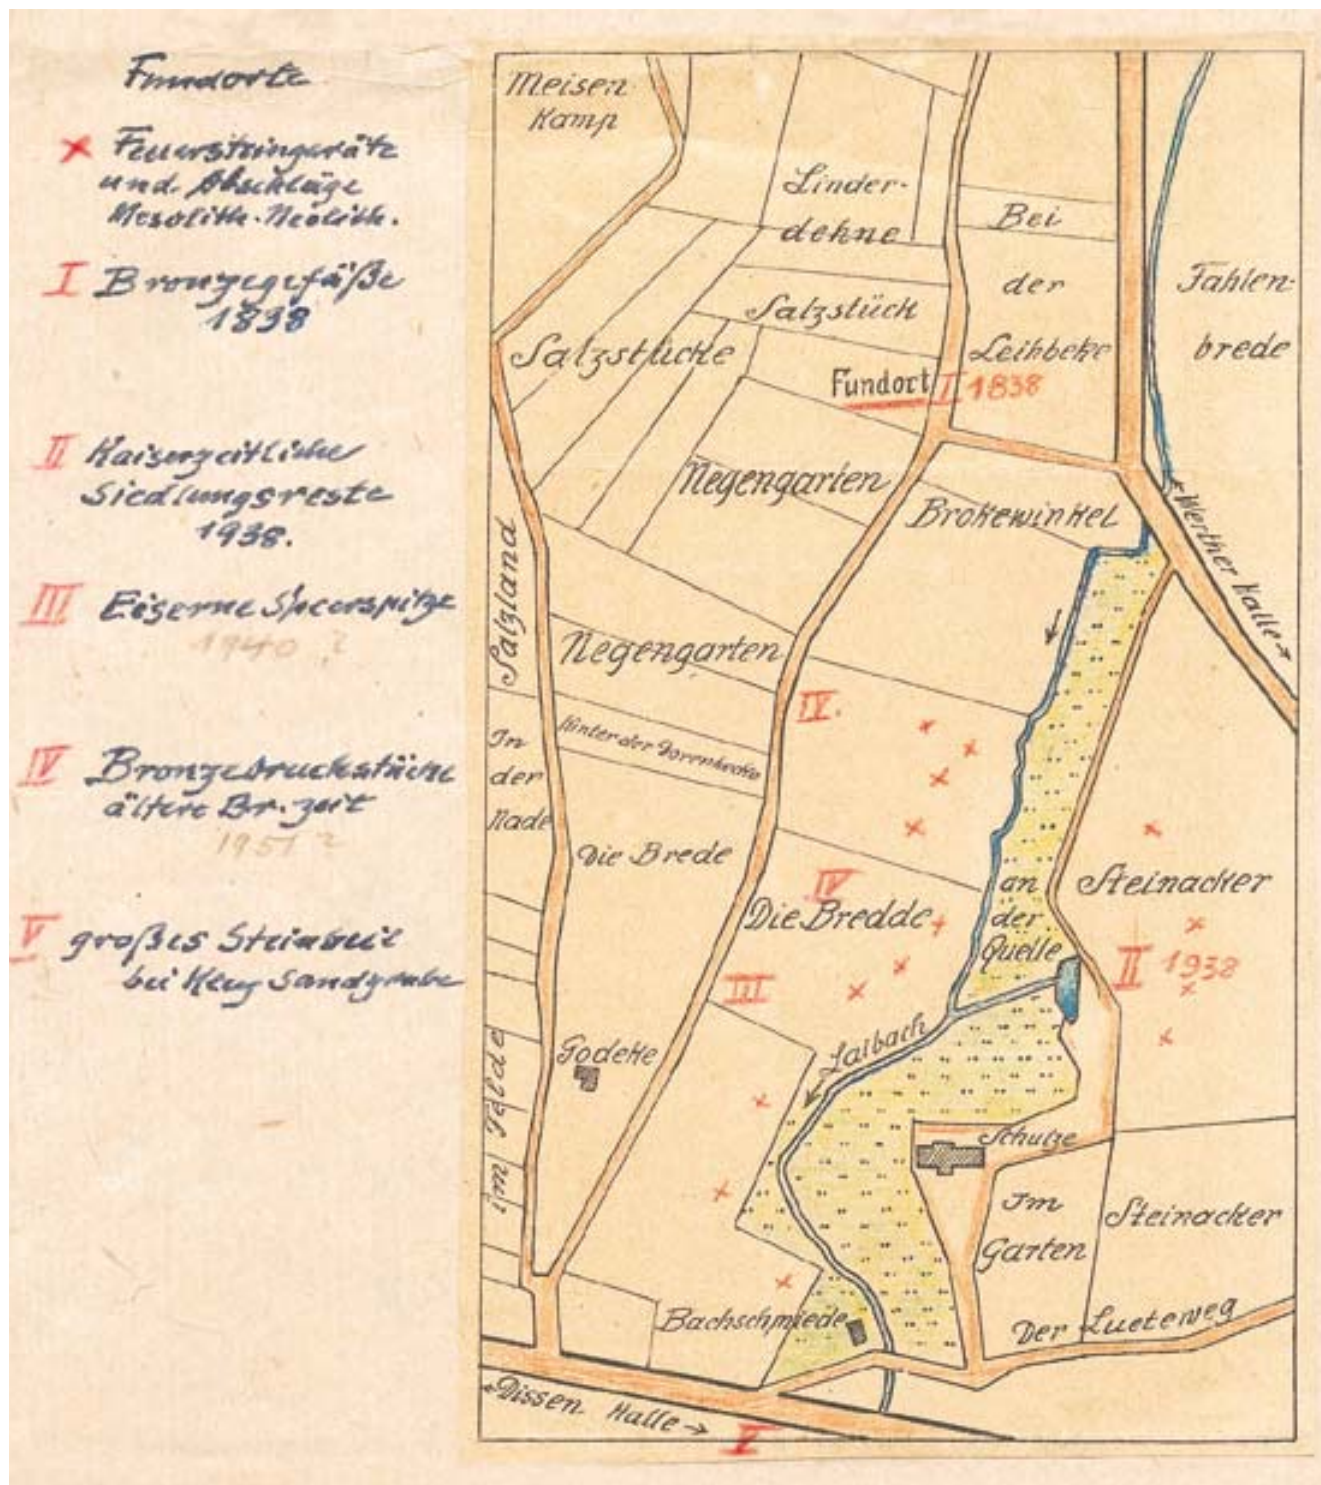 Fundorte
x Feuersteingeräte
und Abschläge
Mesolith.-Neolith.
I Bronzegefäße
1838
II Kaiserzeitliche
Siedlungsreste
1938.
III Eiserne Speerspitze
1940 ?
IV Bronzebruchstücke
ältere Br. zeit
1951 ?
V großes Steinbeil
bei Sandgrube
Meisen
Kamp
Linder-
dehne
Bei
der
Leihbeke
Fahlen-
brede
Salzstück
Salzstücke
Fundort I 1838
Negengarten
Brokewinkel
Werther Halle
Salzland
Negengarten
IV.
Hinter der
In
der
Nade
Die Brede
IV
Die Bredde
an
der
Quelle
Steinacker
II 1938
III
Laibach
Godeke
im Felde
Schulze
Im
Garten
Steinacker
Bachschmiede
Der Lueteweg
Dissen Halle
V